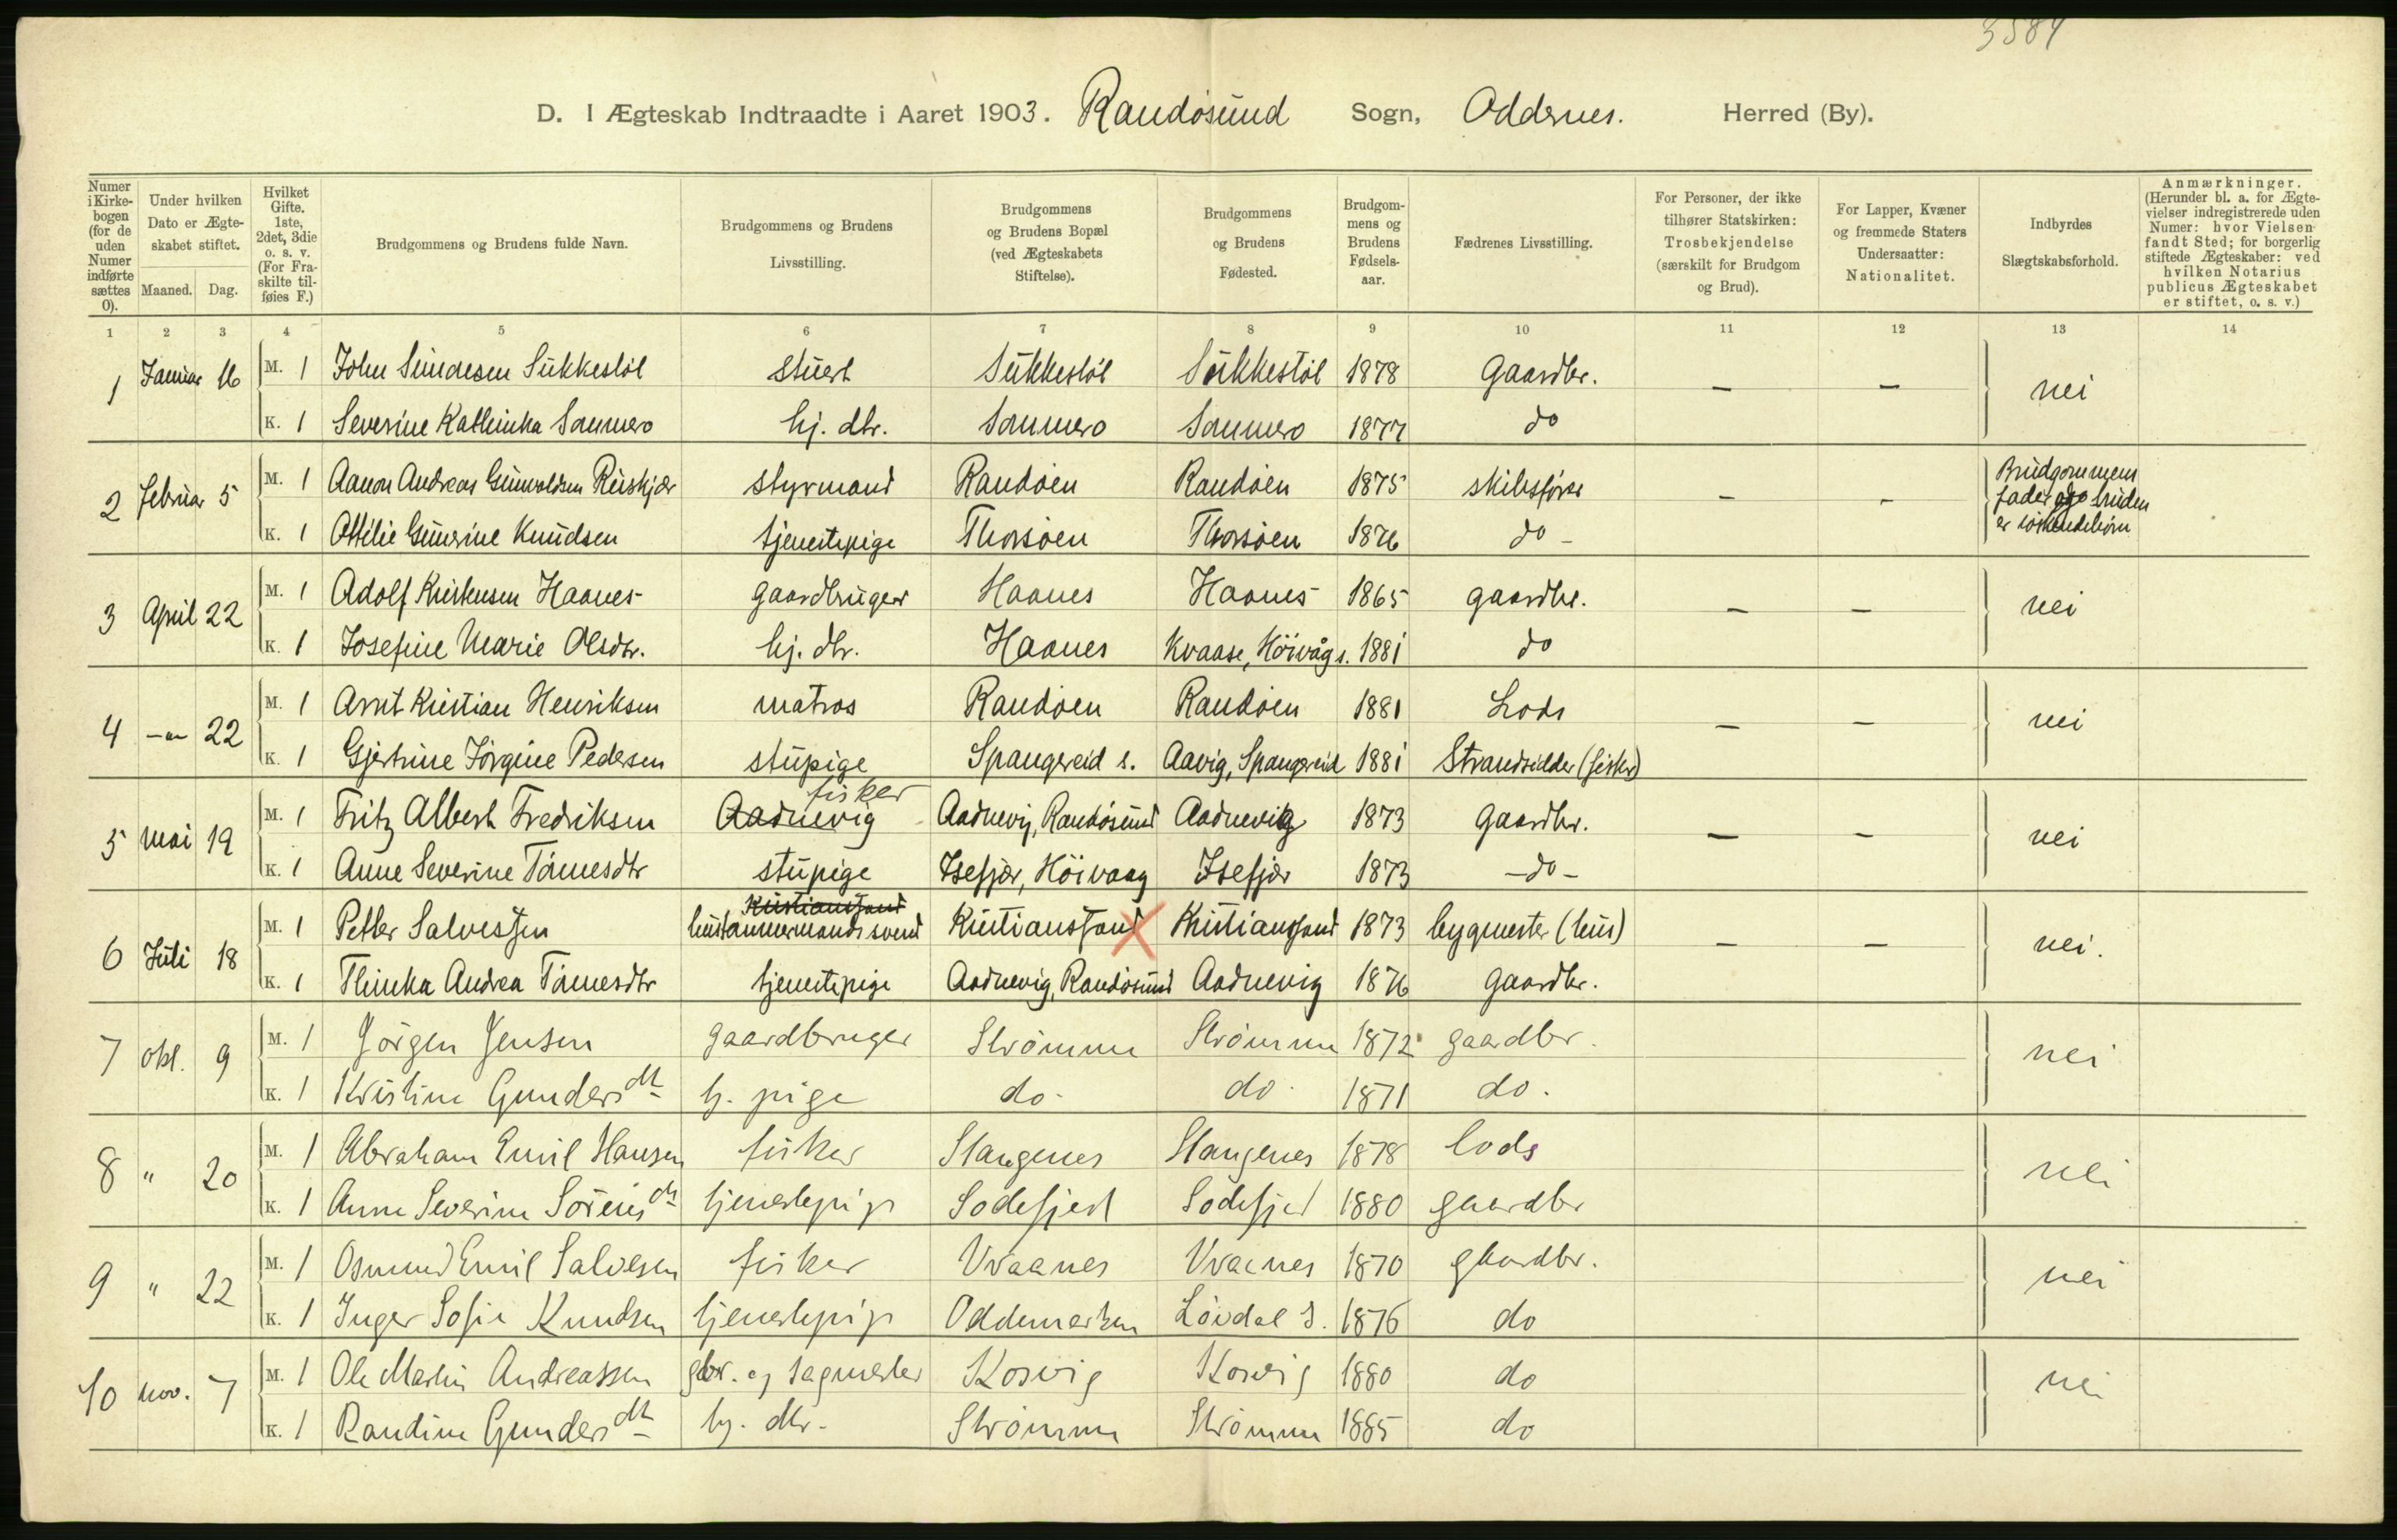 3584
D. I Ægteskab Indtraadte i Aaret 1903. Randøsund Sogn, Oddernes. Herred (By).
Numer i Kirkebogen (for de uden Numer indførte sættes 0).
Under hvilken Dato er Ægteskabet stiftet. Maaned. Dag.
Hvilket Gifte. 1ste, 2det, 3die o. s. v. (For Fraskilte tilføies F.)
Brudgommens og Brudens fulde Navn.
Brudgommens og Brudens Livsstilling.
Brudgommens og Brudens Bopæl (ved Ægteskabets Stiftelse).
Brudgommens og Brudens Fødested.
Brudgommens og Brudens Fødselsaar.
Fædrenes Livsstilling.
For Personer, der ikke tilhører Statskirken: Trosbekjendelse (særskilt for Brudgom og Brud).
For Lapper, Kvæner og fremmede Staters Undersaatter: Nationalitet.
Indbyrdes Slægtskabsforhold.
Anmærkninger. (Herunder bl. a. for Ægtevielser indregistrerede uden Numer: hvor Vielsen fandt Sted; for borgerlig stiftede Ægteskaber: ved hvilken Notarius publicus Ægteskabet er stiftet, o. s. v.)
1 2 3 4 5 6 7 8 9 10 11 12 13 14
1 Januar 16 M. 1 John Sundesen Sukkestøl stuert Sukkestøl Sukkestøl 1878 Gaardbr. – – nei
K. 1 Severine Kathinka Sommero hj. dtr. Sommero Sommero 1877 do
2 februar 5 M. 1 Aanon Andreas Gunvaldsen Reiskjær styrmand Randøen Randøen 1875 skibsfører – – Brudgommens fader og bruden er søskendebørn
K. 1 Ottilie Gunerine Knudsen tjenestepige Thorsøen Thorsøen 1876 do –
3 April 22 M. 1 Adolf Kristensen Haanes gaardbruger Haanes Haanes 1865 gaardbr. – – nei
K. 1 Josefine Marie Olsdtr. hj. dtr. Haanes Kvaase, Höivåg s. 1881 do
4 –"– 22 M. 1 Arnt Kristian Henriksen matros Randøen Randøen 1881 Lods – – nei
K. 1 Gjertrine Jörgine Pedersen stupige Spangereid s. Aavig, Spangereid 1881 Strandsidder (fisker)
5 mai 19 M. 1 Fritz Albert Fredriksen Aadnevig fisker Aadnevig, Randøsund Aadnevig 1873 Gaardbr. – – nei
K. 1 Anne Severine Tönnesdtr stupige Isefjær, Höivaag Isefjær 1873 –do–
6 Juli 18 M. 1 Petter Salvesen Kristianssand hustømmermandssvend Kristianssand Kristianssand 1873 bygmester (hus) – – nei.
K. 1 Thinka Andrea Tönnesdtr tjenestepige Aadnevig, Randøsund Aadnevig 1876 gaardbr.
7 okt. 9 M. 1 Jörgen Jensen gaardbruger Strömme Strömme 1872 gaardbr. nei
K. 1 Kristine Gundersdt hj. pige do do 1871 do.
8 " 20 M. 1 Abraham Emil Hansen fisker Stangenes Stangenes 1878 lods nei
K. 1 Anne Severine Sörensdt tjenestepige Sodefjed Sodefjed 1880 gaardbr
9 " 22 M. 1 Osmund Emil Salvesen fisker Vraanes Vraanes 1870 gaardbr. nei
K. 1 Inger Sofie Knudsen tjenestepige Oddemarken Lövdal S. 1876 do
10 nov. 7 M. 1 Ole Martin Andreassen gbr. og sagmester Korsvig Korsvig 1880 do nei
K. 1 Randine Gundersdt hj. dtr. Strömme Strömme 1885 do